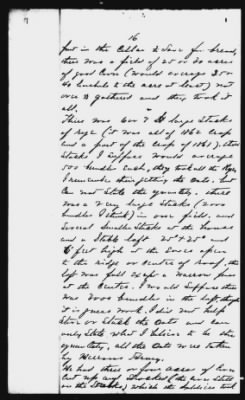 16
put in the Cellar to save for bread,
there was a field of 25 or 30 acres
of good Corn (would average 35 or
40 bushels to the acre at least) not
over 3 gathered and they took it
all.
There was 6 or 7 large Stacks
of rye (it was all of 1862 Crop
and a part of the crop of 1861), these
Stacks I suppose would average
500 bundles each, they took all the Rye
I remember their getting the Oats, but
Can not state the quantity. there
was a very large Stack (2000
bundles I think) in one field, and
several smaller Stacks at the house
and a Stable loft 25 x 25 and
6 feet high at the Eaves after
to the ridge or Centre of roof, the
loft was full except a narrow pass
at the Centre. I would suppose there
was 2000 bundles in the loft, though
it is guess work. I did not help
Stow or Stack the Oats and can
only State what I believe to be the
quantity, all the Oats was taken
by Army.
We had three or four acres of Corn
Cut up and Shocked (the corn still
on the Stalks) which the Soldiers took